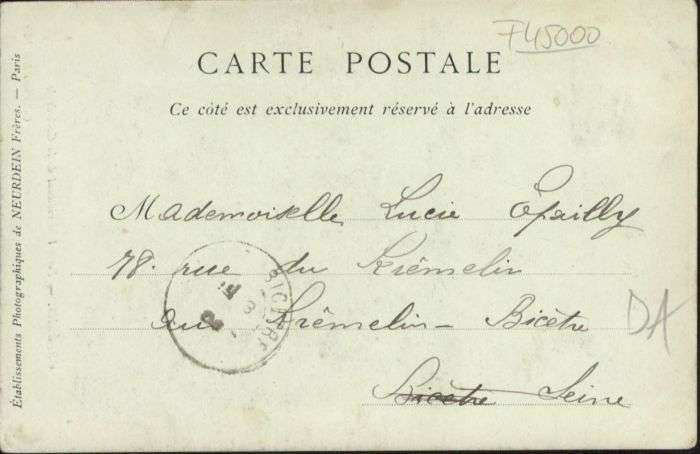 F45000
CARTE POSTALE
Ce côté est exclusivement réservé à l'adresse
Mademoiselle Lucie Epailly
78. rue du Krêmelin
au Krêmelin - Bicêtre
DA
Bicêtre Seine
BICÊTRE
Etablissements Photographiques de NEURDEIN Frères. — Paris